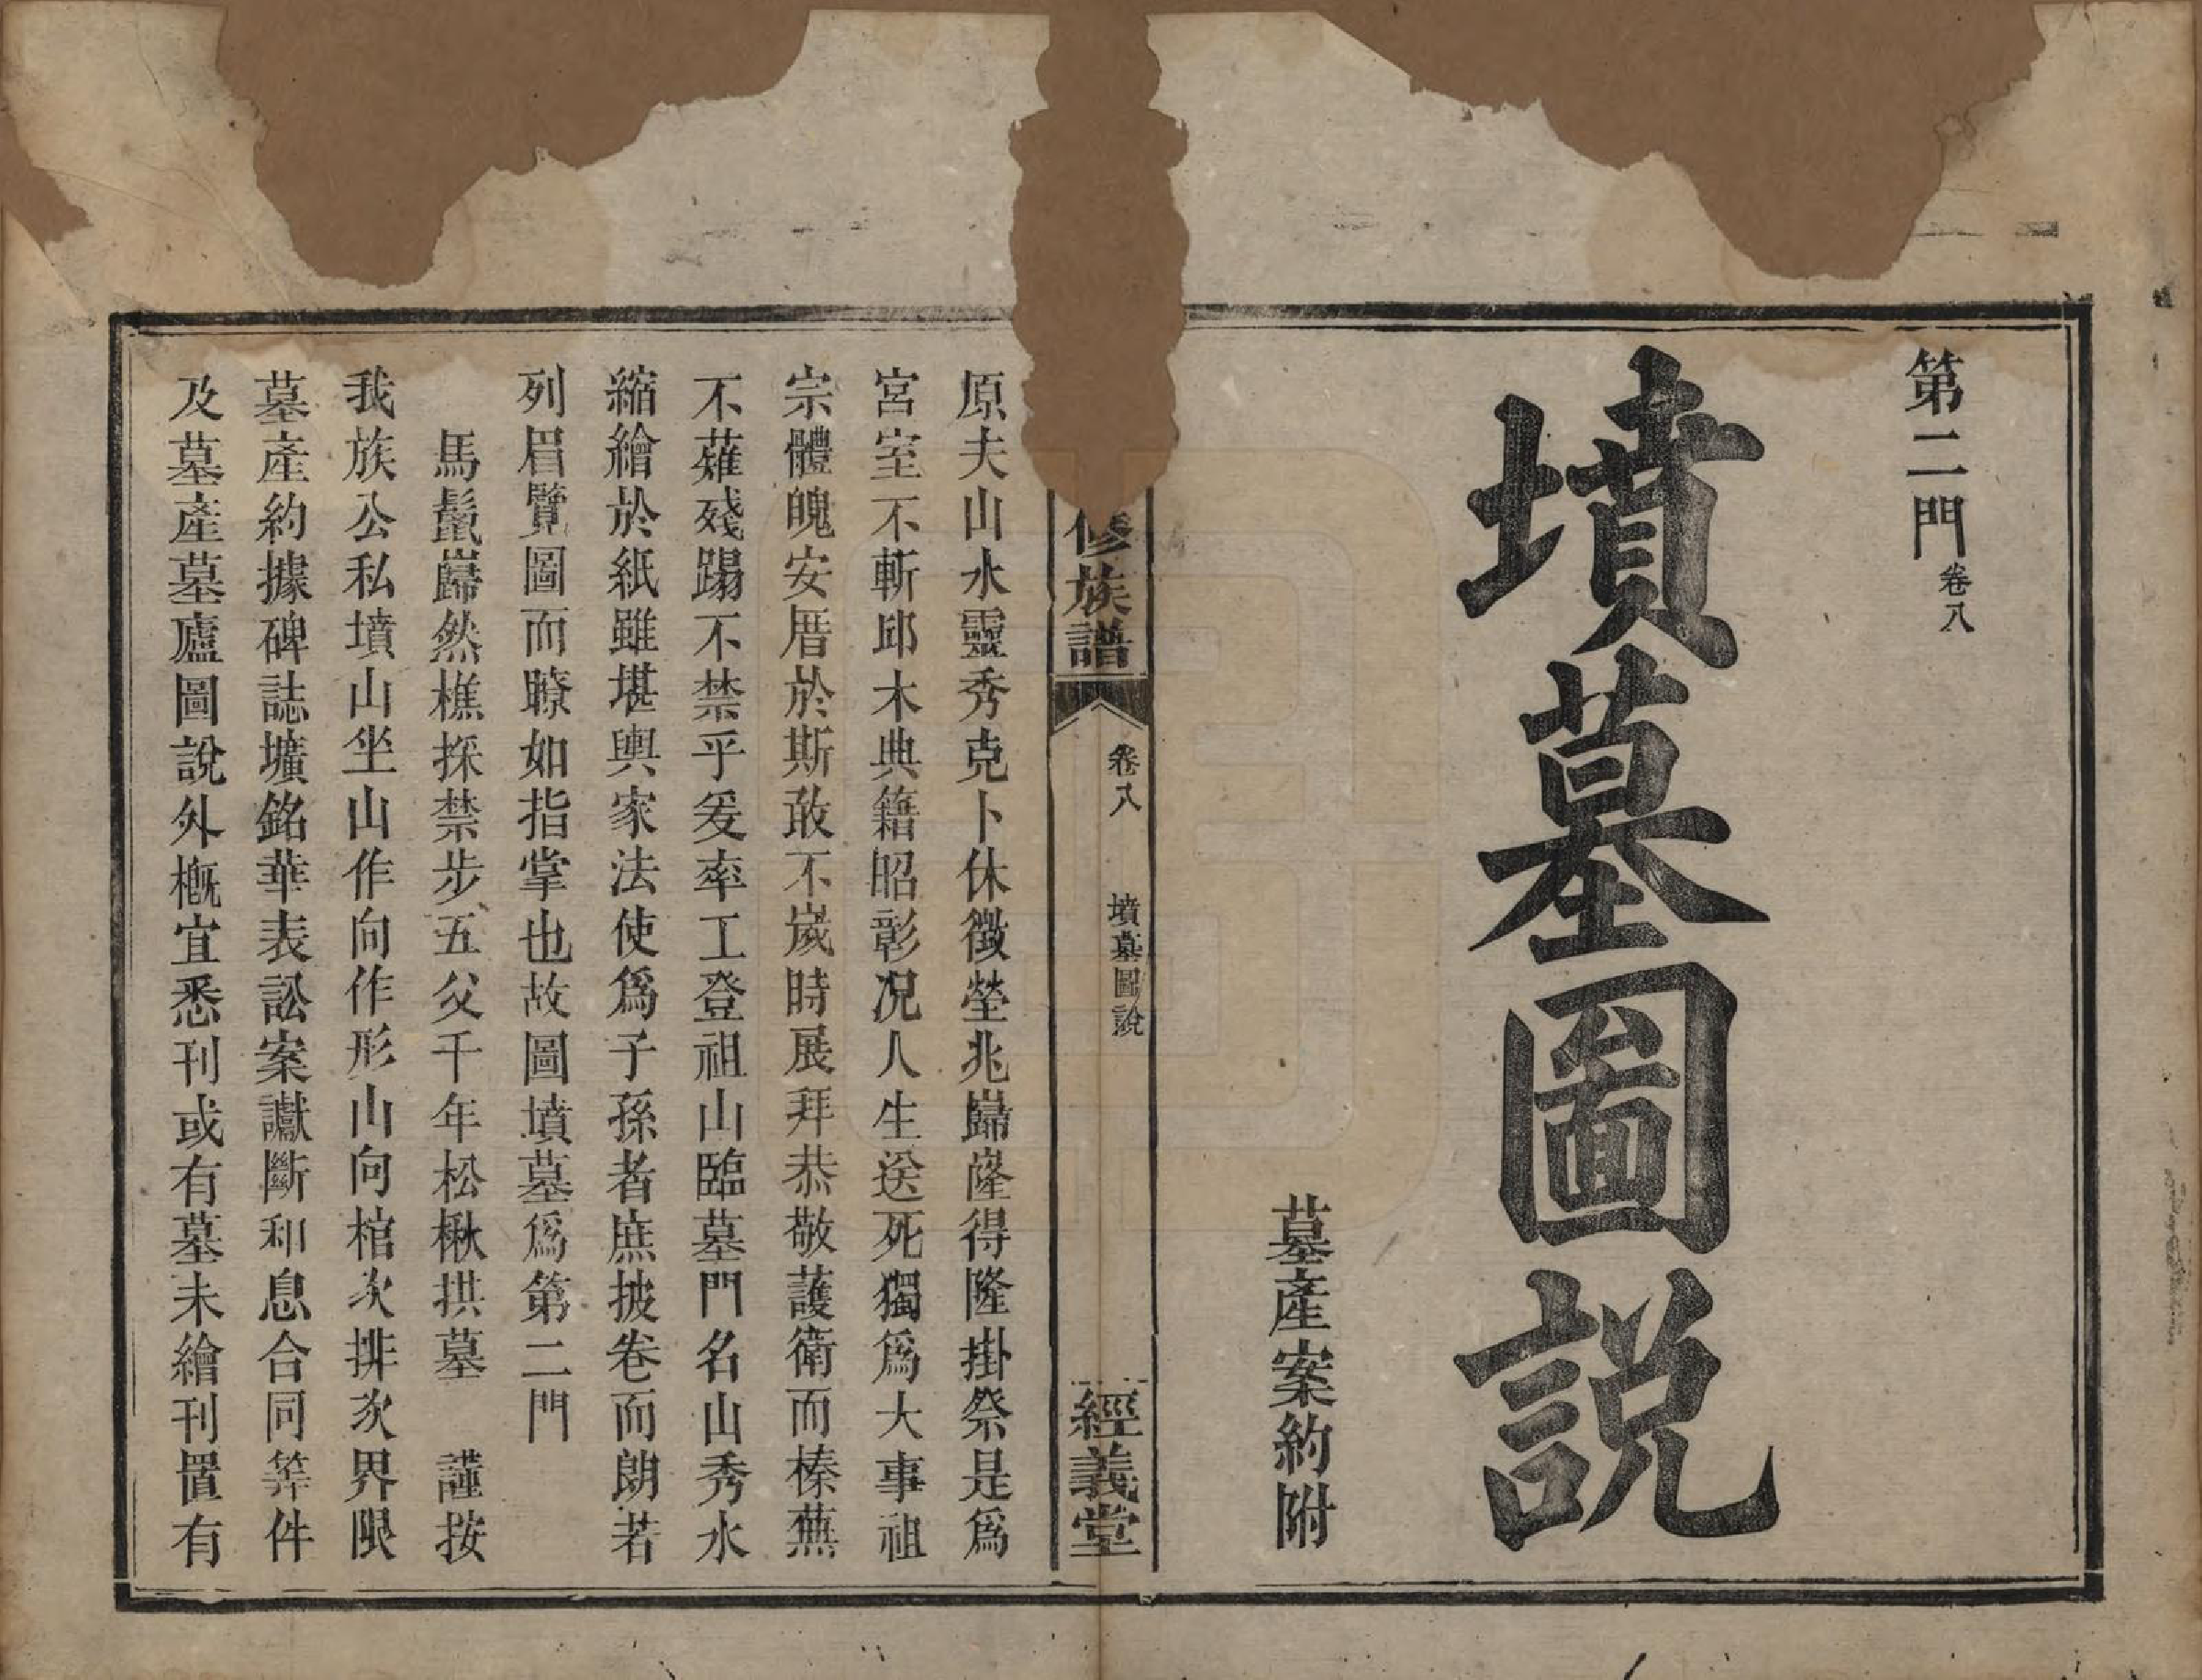 第二門 卷八
墳墓圖說
墓產案約附
修族譜 卷八 墳墓圖說 經義堂
原夫山水靈秀克卜休徵塋兆巋窿得隆掛祭是爲
宮室不斬邱木典籍昭彰况人生送死獨爲大事祖
宗體魄安厝於斯敢不歲時展拜恭敬護衛而榛蕪
不薙殘蹋不禁乎爰率工登祖山臨墓門名山秀水
縮繪於紙雖堪輿家法使爲子孫者庶披卷而朗若
列眉覽圖而瞭如指掌也故圖墳墓爲第二門
馬鬣巋然樵採禁步五父千年松楸拱墓 謹按
我族公私墳山坐山作向作形山向棺次排次界限
墓產約據碑誌壙銘華表訟案讞斷和息合同等件
及墓產墓廬圖說外概宜悉刊或有墓未繪刊置有